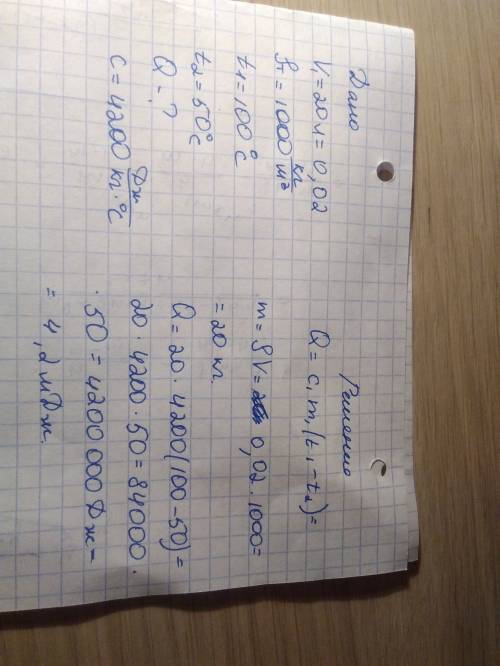 Дано
V₁ = 20 л = 0,02
ρ₁ = 1000 кг/м³
t₁ = 100°C
t₂ = 50°C
Q - ?
c = 4200 Дж/кг·°C
Решение
Q = c₁m₁(t₁ - t₂) =
m = ρV = 0,02 · 1000 =
= 20 кг.
Q = 20 · 4200(100 - 50) =
20 · 4200 · 50 = 84000 ·
· 50 = 4200 000 Дж =
= 4,2 мДж.